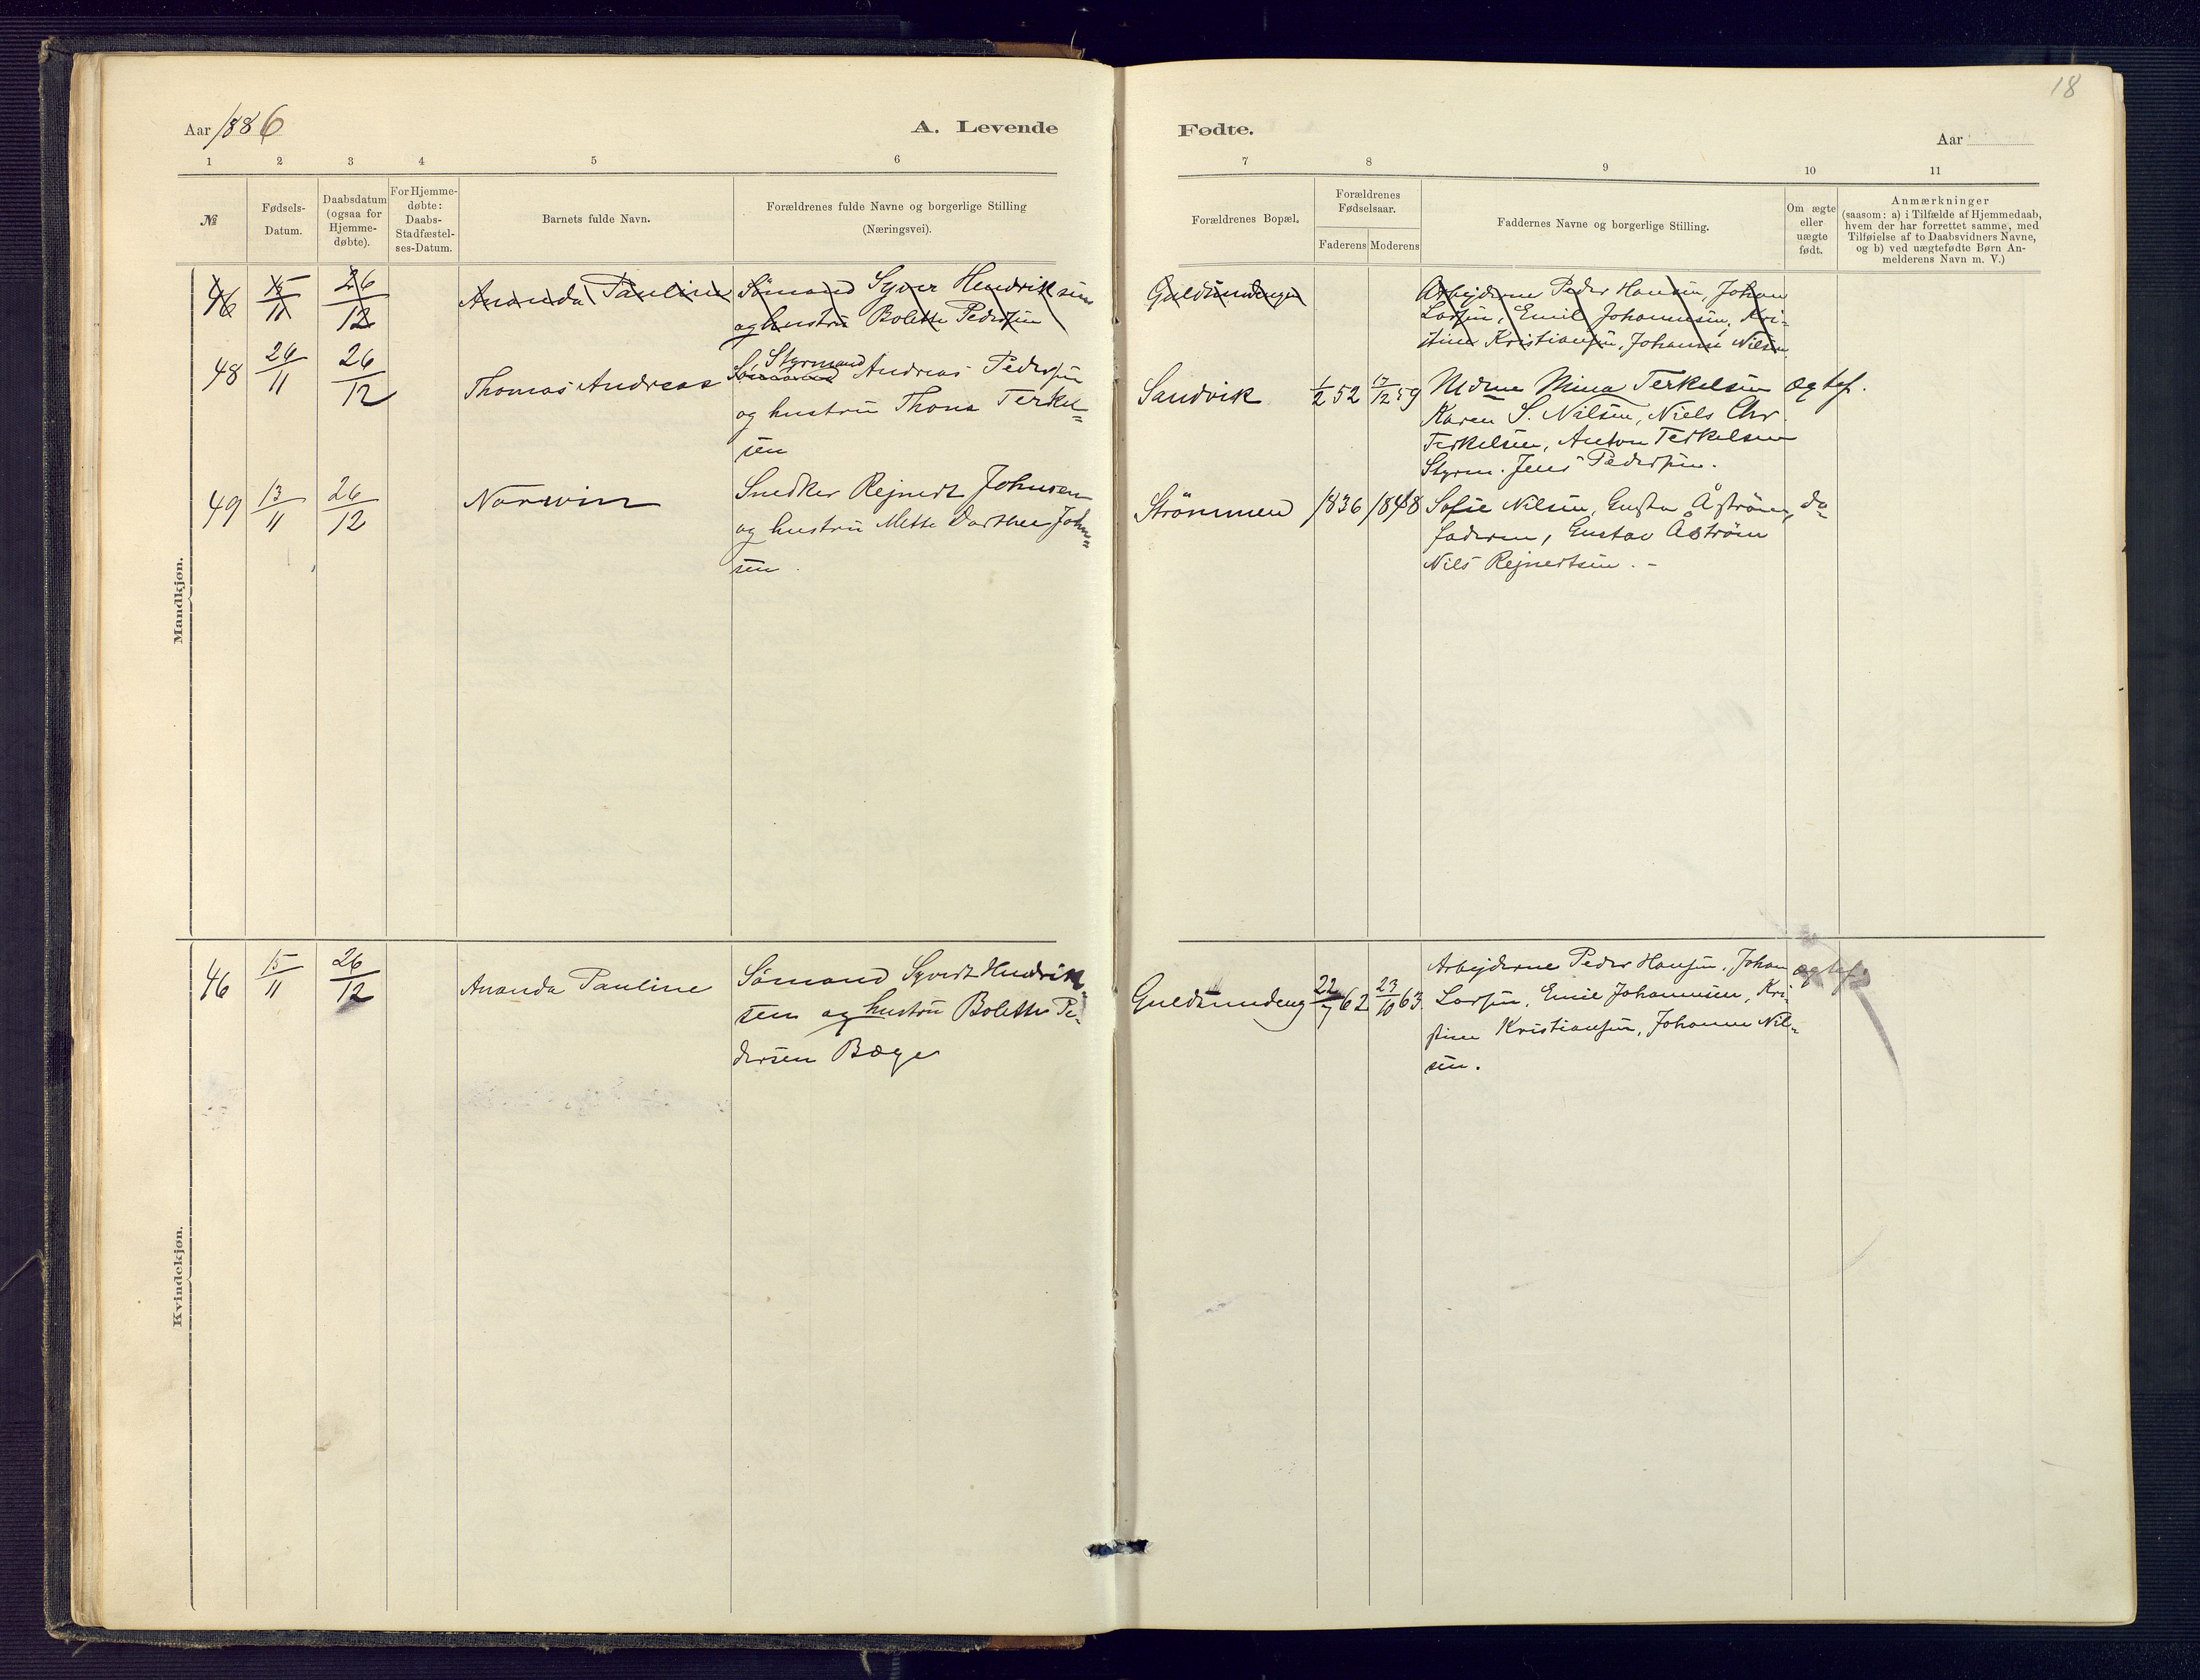 18
Aar 1886
A. Levende
Fødte.
Aar
1 2 3 4 5 6
7 8 9 10 11
№
Fødsels-
Datum.
Daabsdatum
(ogsaa for
Hjemme-
døbte).
For Hjemme-
døbte:
Daabs-
Stadfæstel-
ses-Datum.
Barnets fulde Navn.
Forældrenes fulde Navne og borgerlige Stilling
(Næringsvei).
Forældrenes Bopæl.
Forældrenes
Fødselsaar.
Faderens Moderens
Faddernes Navne og borgerlige Stilling.
Om ægte
eller
uægte
født.
Anmærkninger
(saasom: a) i Tilfælde af Hjemmedaab,
hvem der har forrettet samme, med
Tilføielse af to Daabsvidners Navne,
og b) ved uægtefødte Børn An-
melderens Navn m. V.)
Mandkjøn.
46 15/11 26/12 Ananda Pauline
Sömand Syver Hendriksen
og hustru Bolette Pedersen
Arbejderne Peder Hansen, Johan
Larsen, Emil Johannesen, Kri-
stine Kristiansen, Johanne Nilsen
48 26/11 26/12 Thomas Andreas
Styrmand
Sömand Andreas Pedersen
og hustru Thona Terkel=
sen
Sandvik 1/2 52 17/12 59
Mdme Mina Terkelsen
Karen S. Nilsen, Niels Chr.
Terkelsen, Anton Terkelsen
Styrm. Jens Pedersen.
Ægtef.
49 13/11 26/12 Norwin
Snedker Rejnert Johnsen
og hustru Mette Dorthea John=
sen
Strömmen 1836 1848
Sofie Nilsen, Gusta Åström,
faderen, Gustav Åström
Nils Rejnertsen. -
do
Kvindekjøn.
46 15/11 26/12 Ananda Pauline
Sömand Syvert Hendrik-
sen og hustru Bolette Pe-
dersen Bøge
Guldsmedeng 22/7 62 23/10 63
Arbejderne Peder Hansen, Johan
Larsen, Emil Johannesen, Kri-
stine Kristiansen, Johanne Nil-
sen.
ægtef.